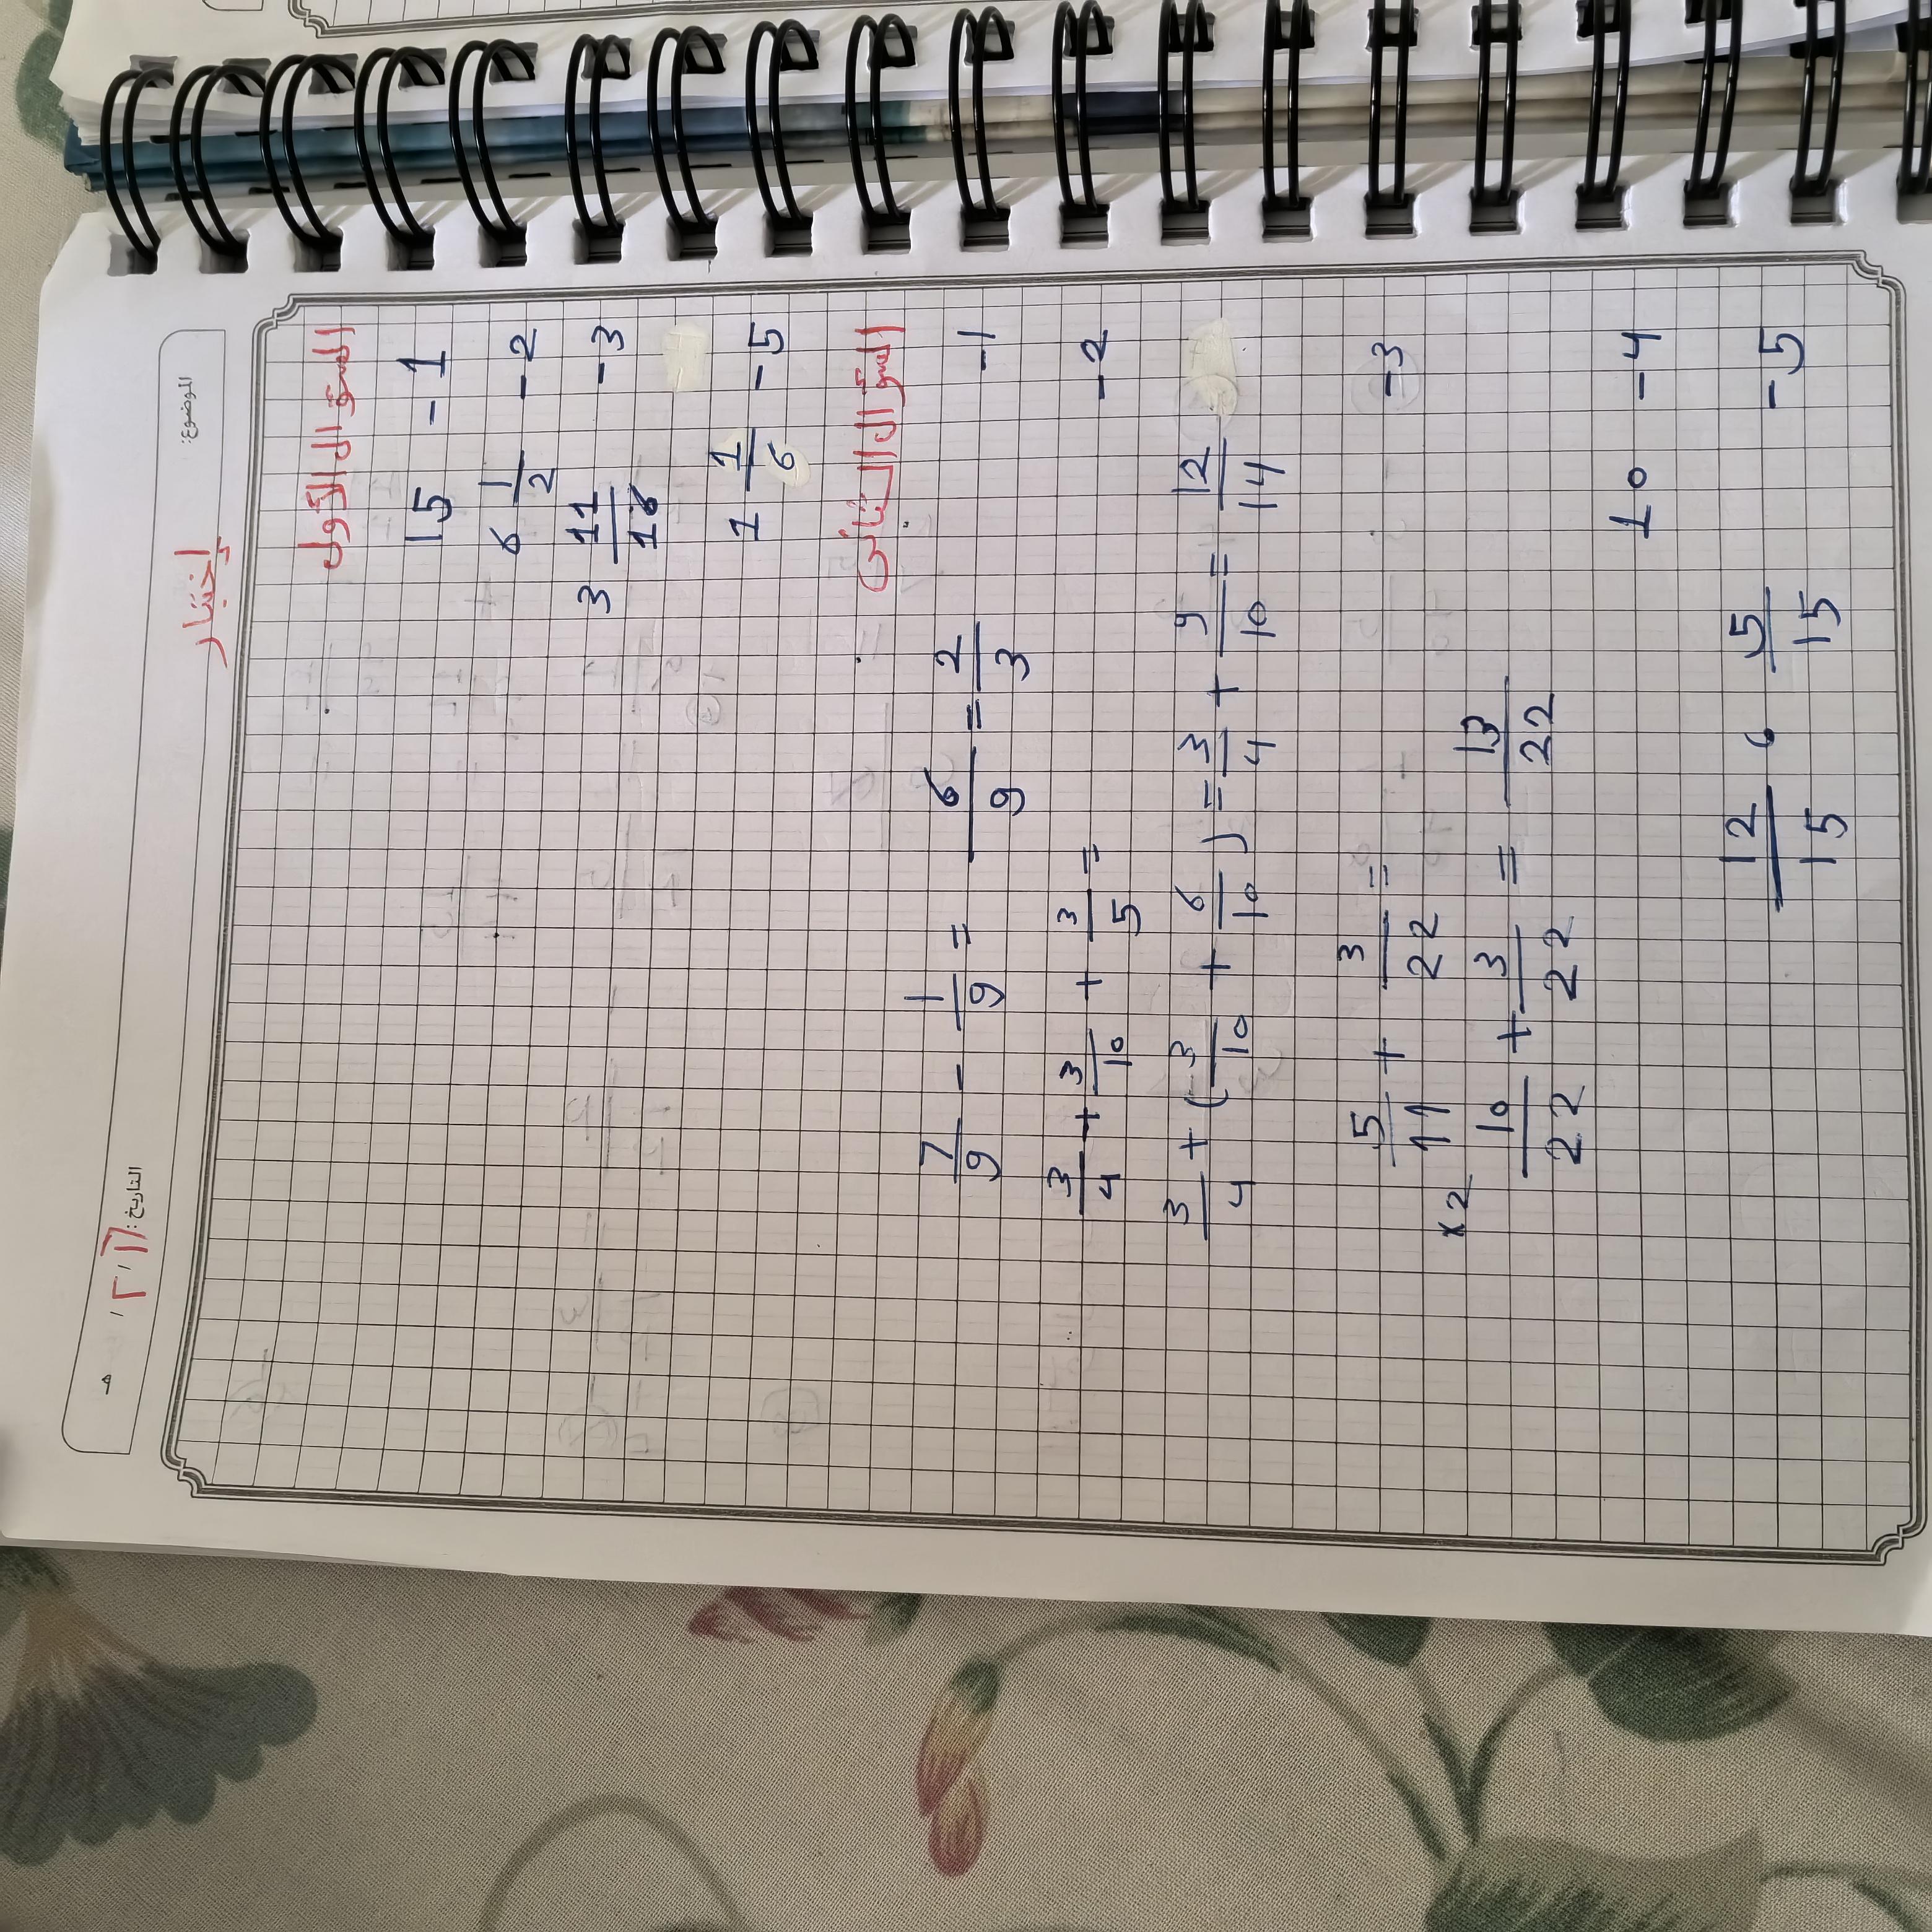 الموضوع:
التاريخ: ١٦ / ٢ /
إختبار
السؤال الأول
15 -1
6 1/2 -2
3 11/16 -3
1 1/6 -5
السؤال الثاني
7/9 - 1/9 = 6/9 = 2/3 -1
3/4 + 3/10 + 3/5 = -2
3/4 + (3/10 + 6/10) = 3/4 + 9/10 = 12/14
5/11 + 3/22 = -3
×2
10/22 + 3/22 = 13/22
10 -4
12/15 6 5/15 -5